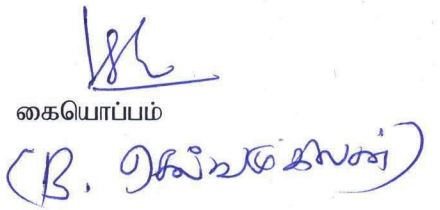 கையொப்பம்
(B. செல்வமுகிலன்)